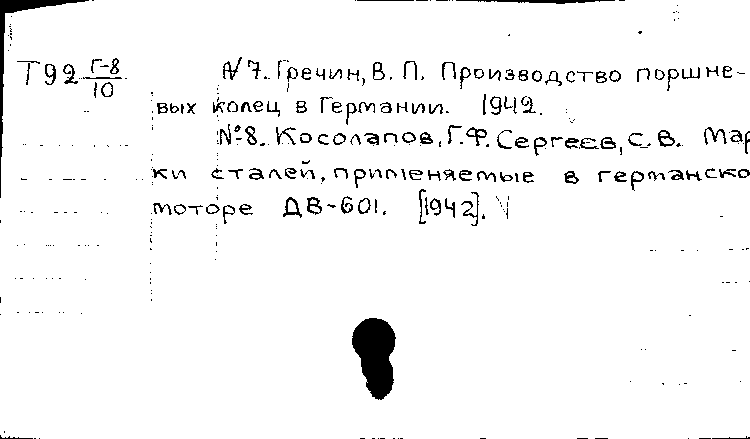 Т92 Г-8/10 № 7. Гречин, В. П. Производство поршне-
вых колец в Германии. 1942.
№ 8. Косолапов, Г.Ф. Сергеев, С.В. Мар
ки сталей, применяемые в германско
моторе ДВ-601. [1942].